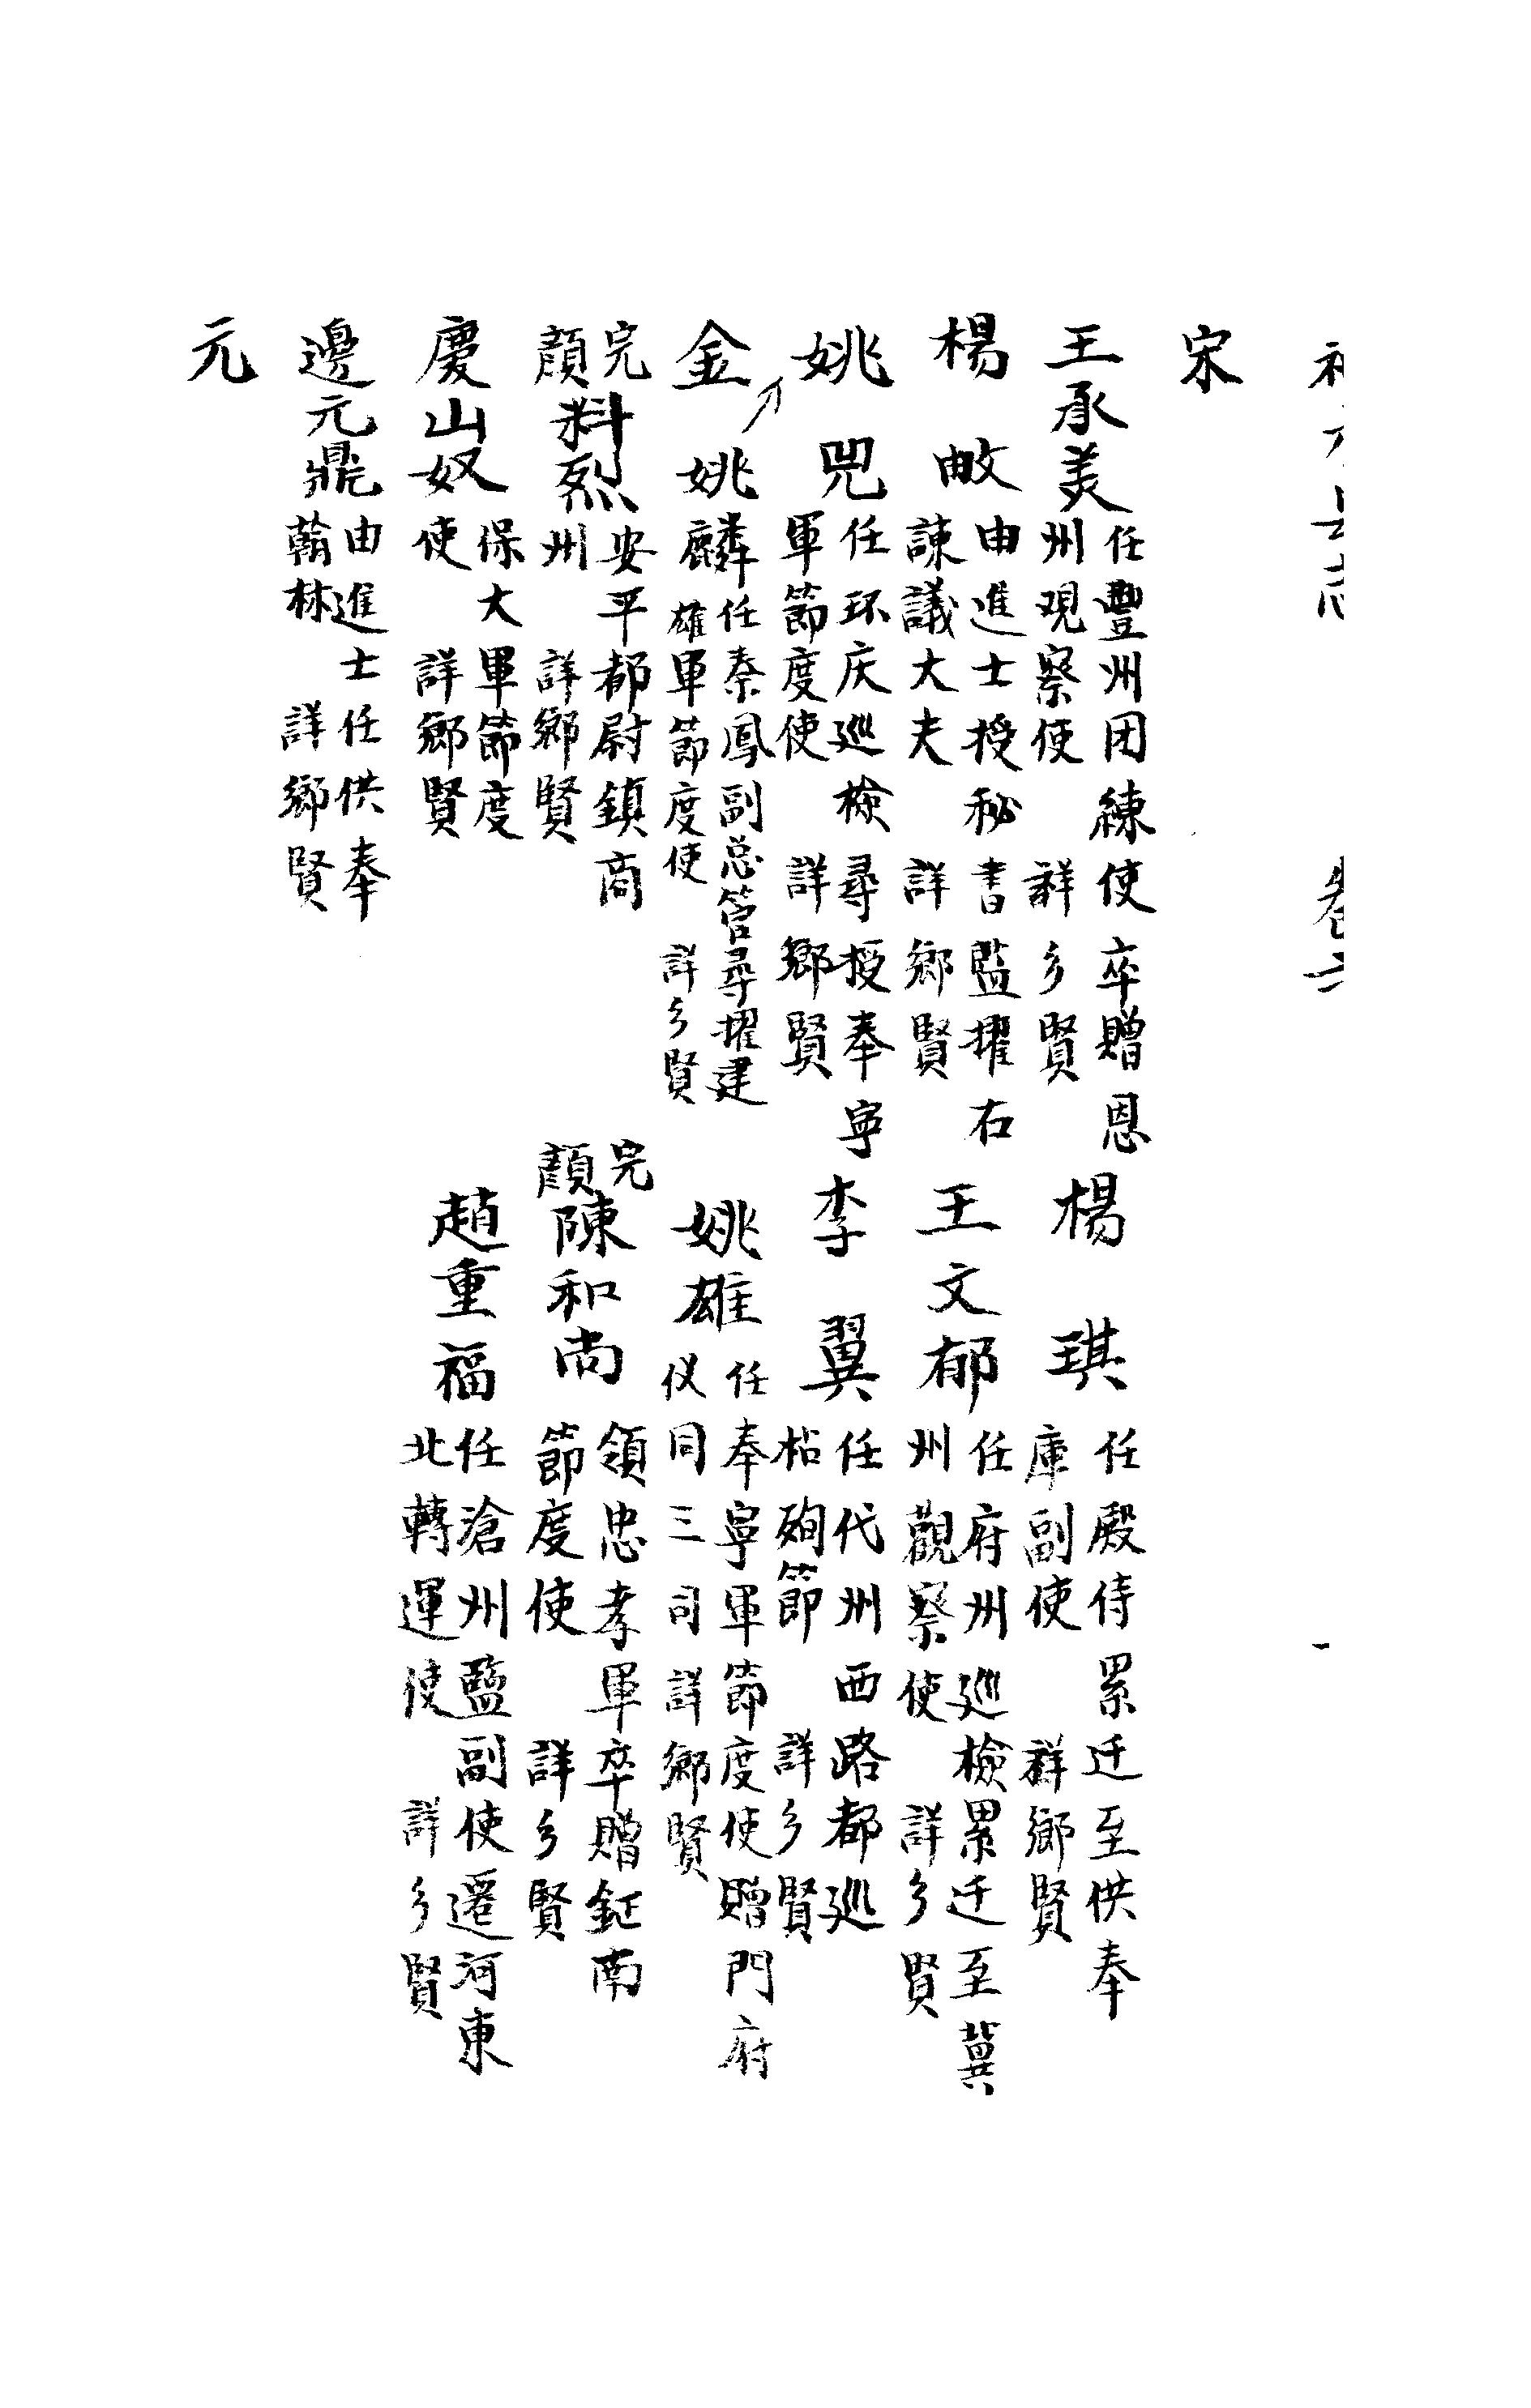 宋
王承美 任豐州团練使卒贈恩
州观察使 詳乡賢
楊琪 任殿侍累迁至供奉
庫副使 詳鄉賢
楊畋 由進士授秘書監擢右
諌議大夫 詳鄉賢
王文郁 任府州巡檢累迁至冀
州觀察使 詳乡賢
姚兕 任环庆巡檢尋授奉寧
軍節度使 詳鄉賢
李翼 任代州西路都巡
殉節 詳乡賢
金
姚麟 任秦鳳副总管尋擢建
雄軍節度使 詳乡賢
姚雄 任奉寧軍節度使贈開府
仪同三司 詳鄉賢
完顔料烈 安平都尉鎮商
州 詳鄉賢
完顔陳和尚 領忠孝軍卒贈鉦南
節度使 詳乡賢
慶山奴 保大軍節度
使 詳鄉賢
趙重福 任滄州鹽副使遷河東
北轉運使 詳乡賢
邊元鼎 由進士任供奉
翰林 詳鄉賢
元